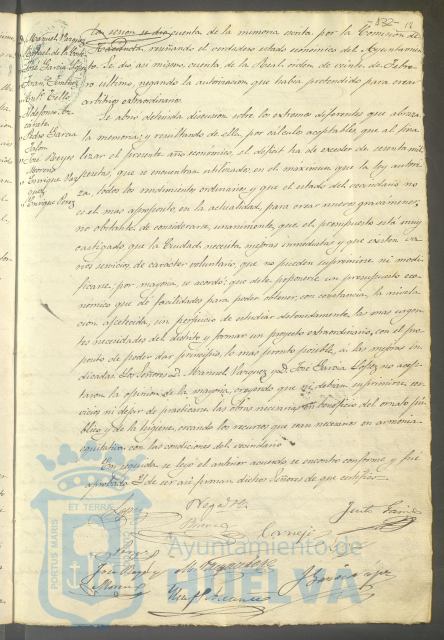 832-
la sesion se dió cuenta de la memoria escrita por la Comisión de
Hacienda, reseñando el verdadero estado económico del Ayuntamien
to. Se dió asi mismo cuenta de la Real orden de veinte de Febre
ro ultimo, negando la autorizacion que habia pretendido para crear
arbitrios extraordinarios.
Se abrió detenida discusion sobre los extremos diferentes que abraza
la memoria; y resultando de ella, por cálculo aceptable, que al fina
lizar el presente año económico, el déficit ha de exceder de sesenta mil
pesetas, que se encuentran utilizados, en el maximun que la ley autori
za, todos los rendimientos ordinarios, y que el estado del vecindario no
es el mas apropósito, en la actualidad, para crear nuevos gravámenes,
no obstante de considerarse, unanimemente, que el presupuesto está muy
castigado, que la Ciudad necesita mejoras inmediatas y que existen va
rios servicios de carácter voluntario, que no pueden suprimirse ni modi
ficarse, por mayoria, se acordó; que debe proponerse un presupuesto eco
nómico que dé facilidades para poder obtener, con constancia, la nivela
cion apetecida, sin perjuicio de estudiar detenidamente, las mas urgen
tes necesidades del distrito y formar un proyecto extraordinario, con el pro
posito de poder dar principio, lo mas pronto posible, á las mejoras in
dicadas. Los Señores D. Manuel Vazquez y D. José Garcia Lopez no acep
taron la opinion de la mayoria, creyendo que ni debian suprimirse ser
vicios ni dejar de practicarse las obras necesarias en beneficio del ornato pú
blico y de la higiene, creando los recursos que sean necesarios en armonia
equitativa con las condiciones del vecindario.
En seguida se leyó el anterior acuerdo, se encontró conforme y fué
aprobado. Y de ser asi firman dichos Señores de que certifico.
Manuel Vazquez
José Garcia Lopez
Ant.º Tello
Ildefonso
Pedro Garcia
José Reyes
Moreno
Enrique
Enrique Perez
Lopez
Vega
Justo Garcia
Cornejo
José Reyes
Moreno
M. Vazquez
PORTUS MARIS ET TERRAE
Ayuntamiento de
HUELVA